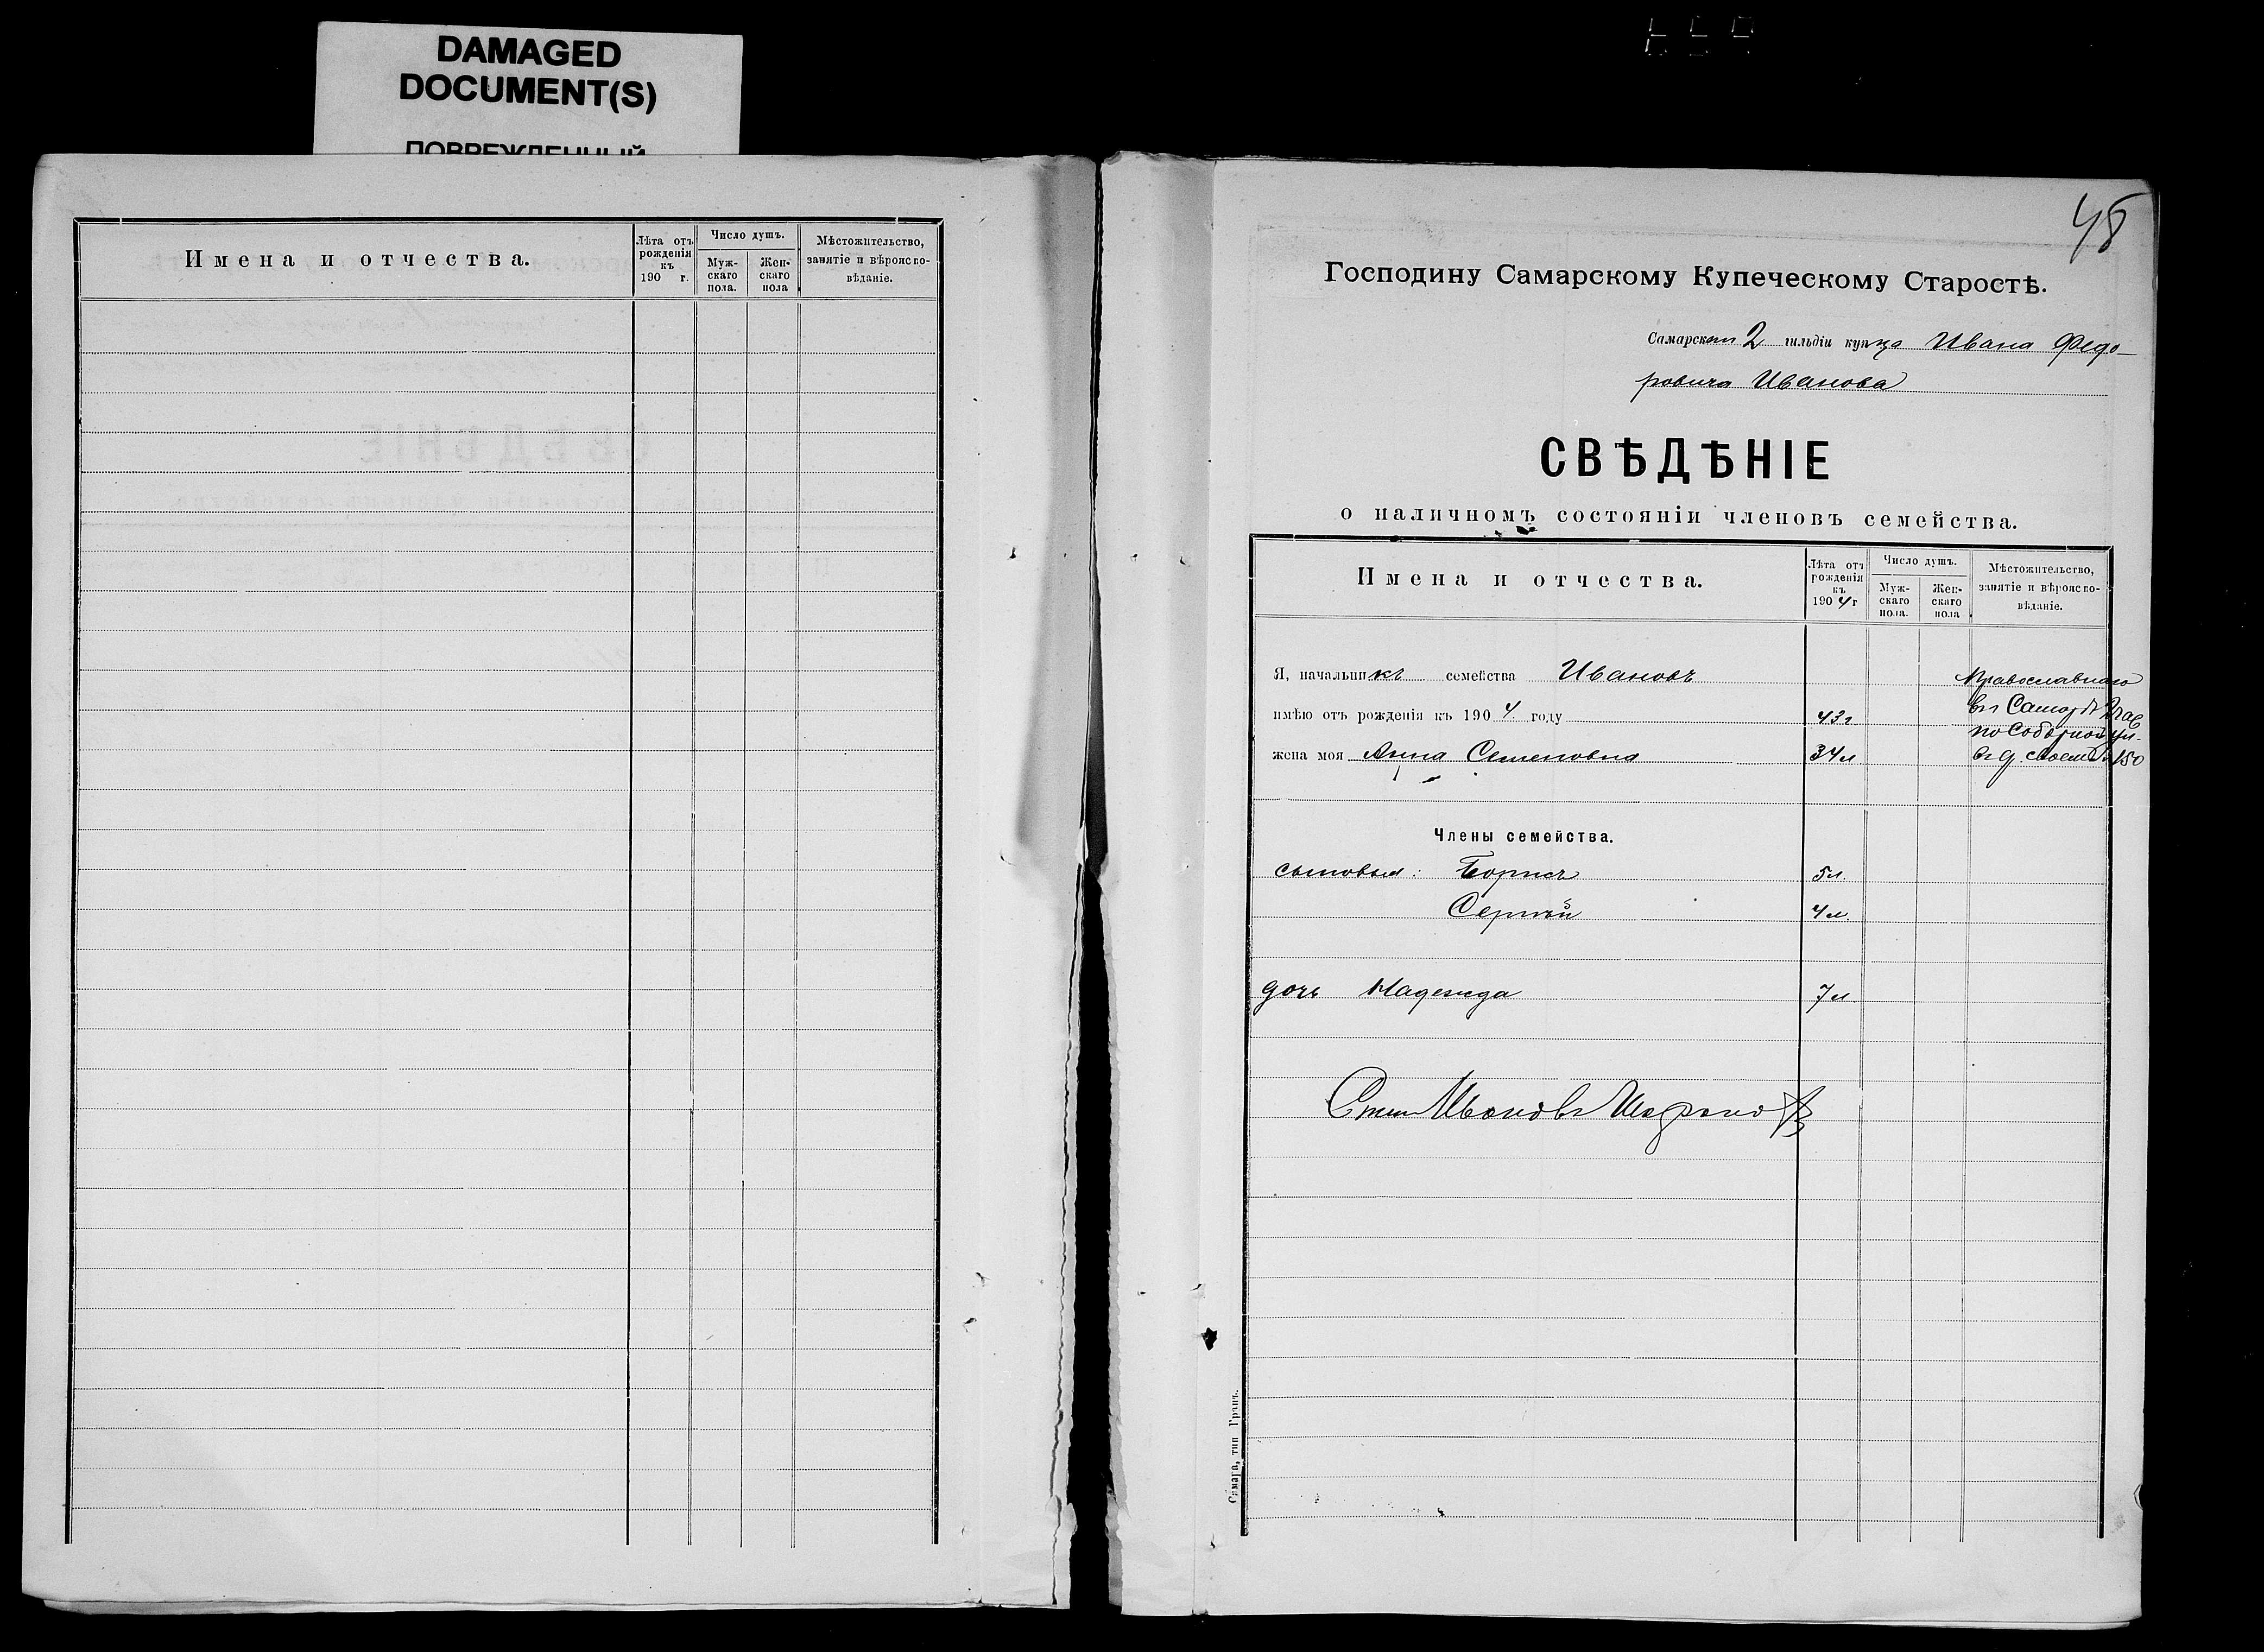 DAMAGED
DOCUMENT(S)
ПОВРЕЖДЕННЫЙ
Имена и отчества.
Лѣта отъ рожденія къ 190 г.
Число душъ.
Муж-скаго пола.
Жен-скаго пола
Мѣстожительство, занятіе и вѣроиспо-вѣданіе.
48
Господину Самарскому Купеческому Старостѣ.
Самарскаго 2 гильдіи купца Ивана Федо-
ровича Иванова
СВѢДѢНІЕ
о наличномъ состояніи членовъ семейства.
Имена и отчества.
Лѣта отъ рожденія къ 1904 г
Число душъ.
Муж-скаго пола.
Жен-скаго пола
Мѣстожительство, занятіе и вѣроиспо-вѣданіе.
Я, начальникъ семейства Ивановъ
Православнаго
имѣю отъ рожденія къ 1904 году 43г
въ Самарѣ 2 час
по Соборной ул.
жена моя Анна Семеновна 34л
въ д. своемъ 150
Члены семейства.
сыновья: Борисъ 5л.
Сергѣй 4л.
дочь Надежда 7л
Ивановъ
Самара, тип Гранъ.